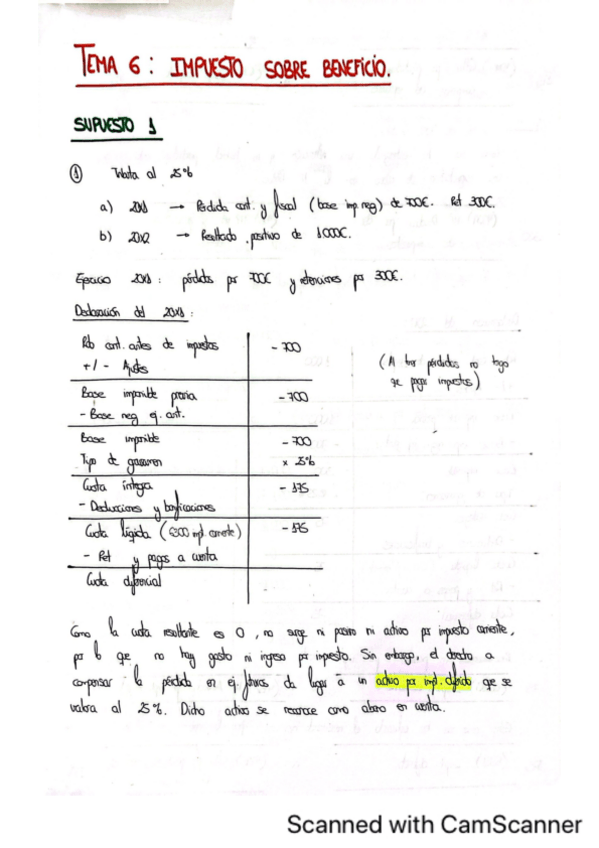 TEMA 6: IMPUESTO SOBRE BENEFICIO.
SUPUESTO 1
① Tributa al 25%
a) 20X1 → Pérdida cont. y fiscal (base imp. neg) de 700€. Ret 300€.
b) 20X2 → Resultado positivo de 1.000€.
Ejercicio 20X1: pérdidas por 700€ y retenciones por 300€.
Declaración del 20X1:
Rdo cont. antes de impuestos - 700
+/- Ajustes
(Al haber pérdidas no tengo
que pagar impuestos)
Base imponible previa - 700
- Base neg ej. ant.
Base imponible - 700
Tipo de gravamen x 25%
Cuota íntegra - 175
- Deducciones y bonificaciones
Cuota líquida (6300 imp. corriente) - 175
- Ret y pagos a cuenta
Cuota diferencial
Como la cuota resultante es 0, no surge ni pasivo ni activo por impuesto corriente,
por lo que no hay gasto ni ingreso por impuesto. Sin embargo, el derecho a
compensar la pérdida en ej. futuros da lugar a un activo por imp. diferido que se
valora al 25%. Dicho activo se reconoce como abono en cuenta.
Scanned with CamScanner